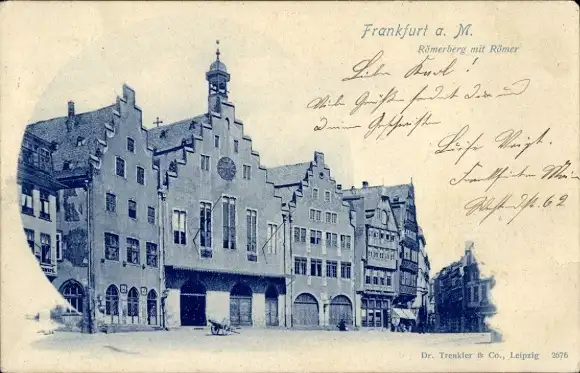 Frankfurt a. M.
Römerberg mit Römer
Liebe Karl!
Viele Grüße sendet Dir und
Deine Geschwister
Luise Voigt.
Frankfurt Main
62
Dr. Trenkler & Co., Leipzig 2676